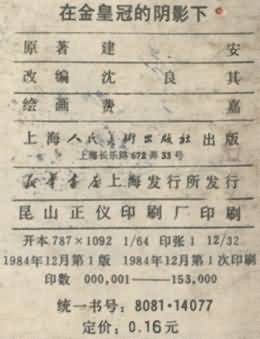 在金皇冠的阴影下
原著 建安
改编 沈良其
绘画 费嘉
上海人民美术出版社出版
上海长乐路672弄33号
新华书店上海发行所发行
昆山正仪印刷厂印刷
开本787×1092 1/64 印张1 12/32
1984年12月第1版 1984年12月第1次印刷
印数 000,001——153,000
统一书号：8081·14077
定价：0.16元